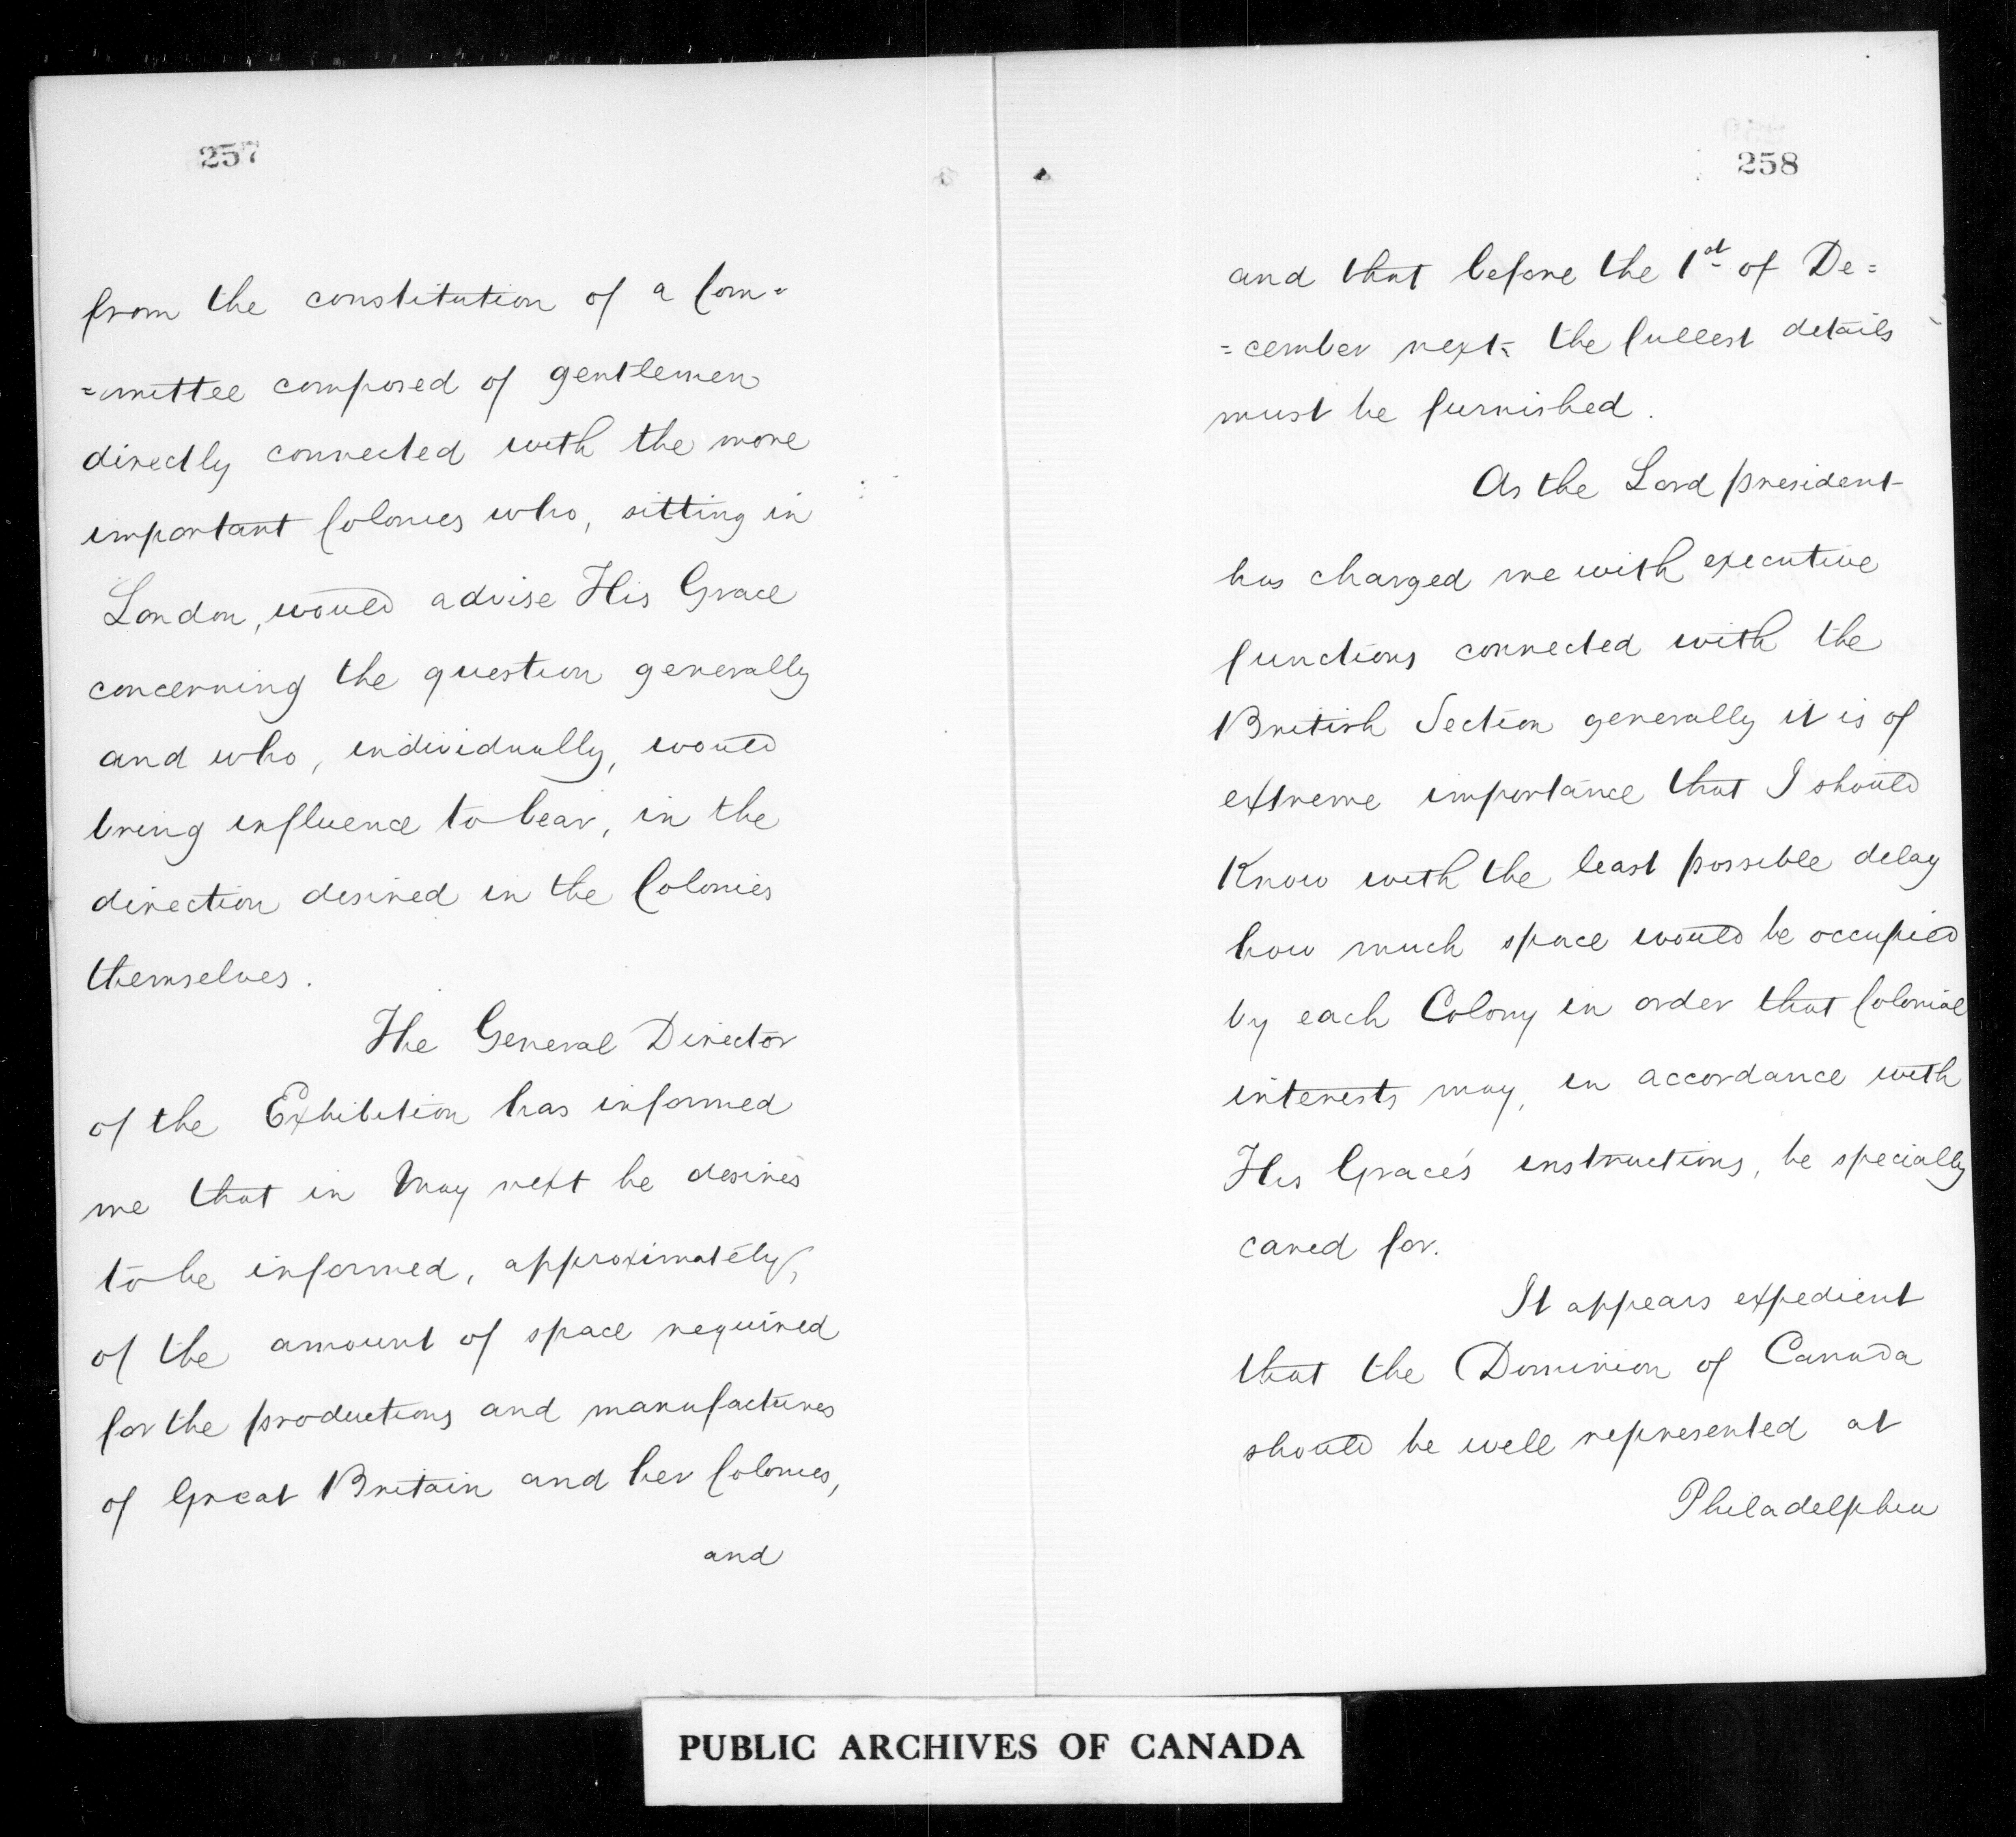 257
from the constitution of a Com=
=mittee composed of gentlemen
directly connected with the more
important Colonies who, sitting in
London, would advise His Grace
concerning the question generally
and who, individually, would
bring influence to bear, in the
direction desired in the Colonies
themselves.
The General Director
of the Exhibition has informed
me that in May next he desires
to be informed, approximately,
of the amount of space required
for the productions and manufactures
of Great Britain and her Colonies,
and
258
and that before the 1st of De=
=cember next the fullest details
must be furnished.
As the Lord president
has charged me with executive
functions connected with the
British Section generally it is of
extreme importance that I should
Know with the least possible delay
how much space would be occupied
by each Colony in order that Colonial
interests may, in accordance with
His Grace's instructions, be specially
cared for.
It appears expedient
that the Dominion of Canada
should be well represented at
Philadelphia
PUBLIC ARCHIVES OF CANADA